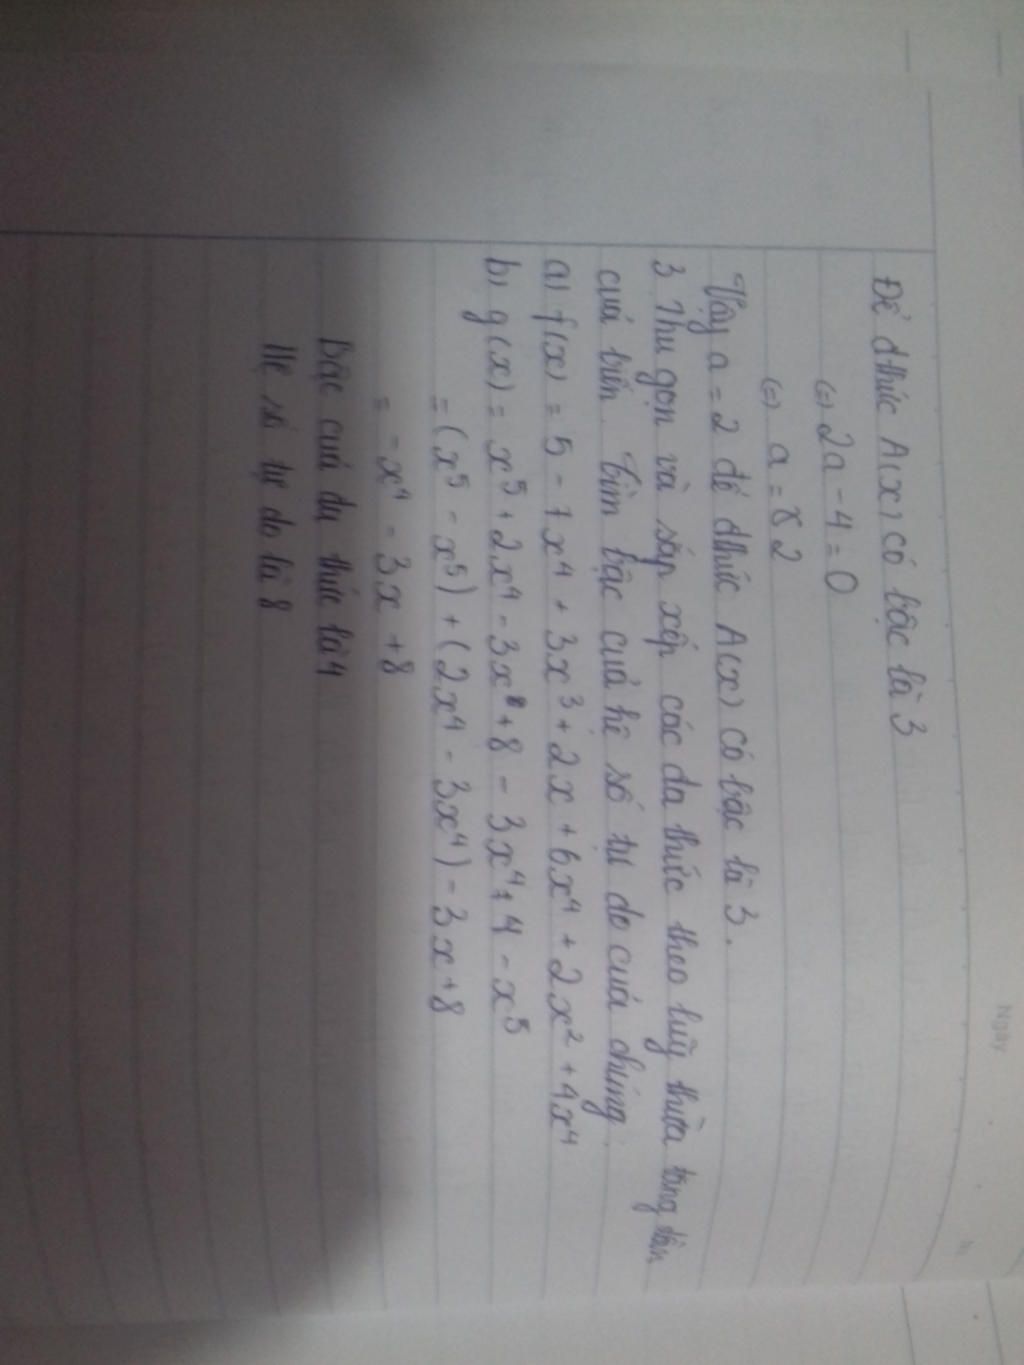 Ngày
Để đthức A(x) có bậc là 3
(=) 2a - 4 = 0
(=) a = 2
Vậy a = 2 để đthức A(x) có bậc là 3.
3 Thu gọn và sắp xếp các đa thức theo luỹ thừa tăng dần
của biến. Tìm bậc của hê số tự do của chúng.
a) f(x) = 5 - 7x⁴ + 3x³ + 2x + 6x⁴ + 2x² + 4x⁴
b) g(x) = x⁵ + 2x⁴ - 3x + 8 - 3x⁴ + 4 - x⁵
= (x⁵ - x⁵) + (2x⁴ - 3x⁴) - 3x + 8
= - x⁴ - 3x + 8
Bậc của đa thức là 4
Hệ số tự do là 8